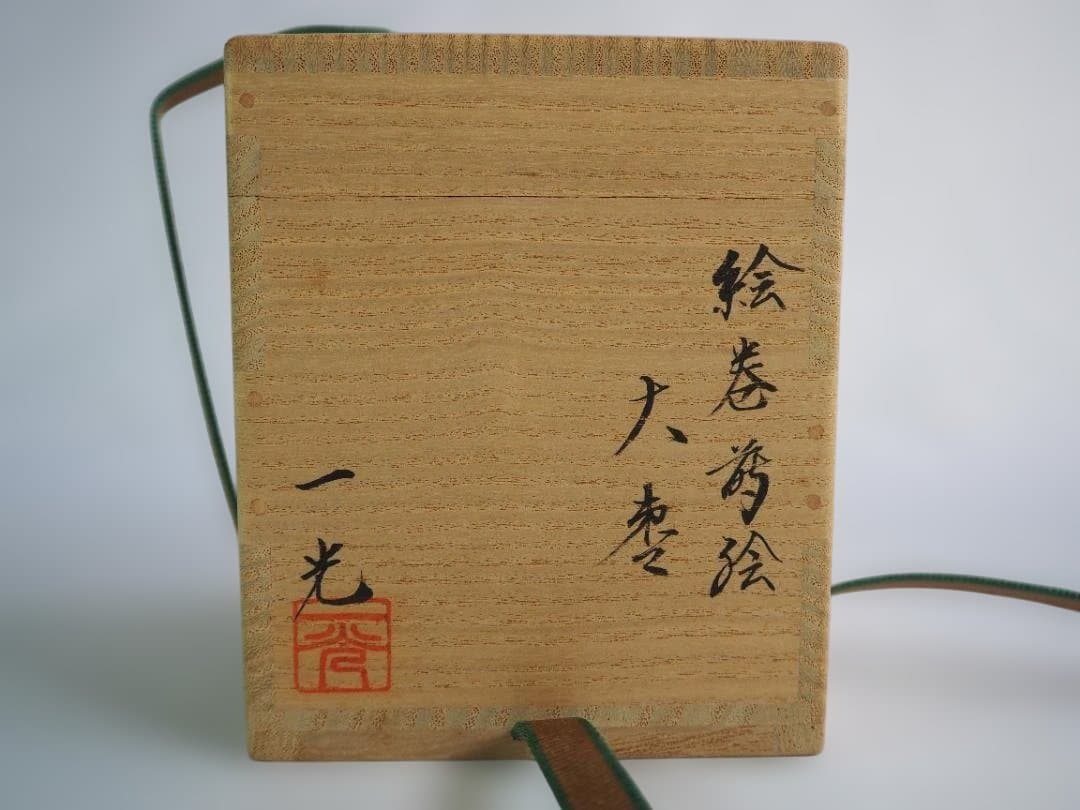 絵巻蒔絵
大棗
一光